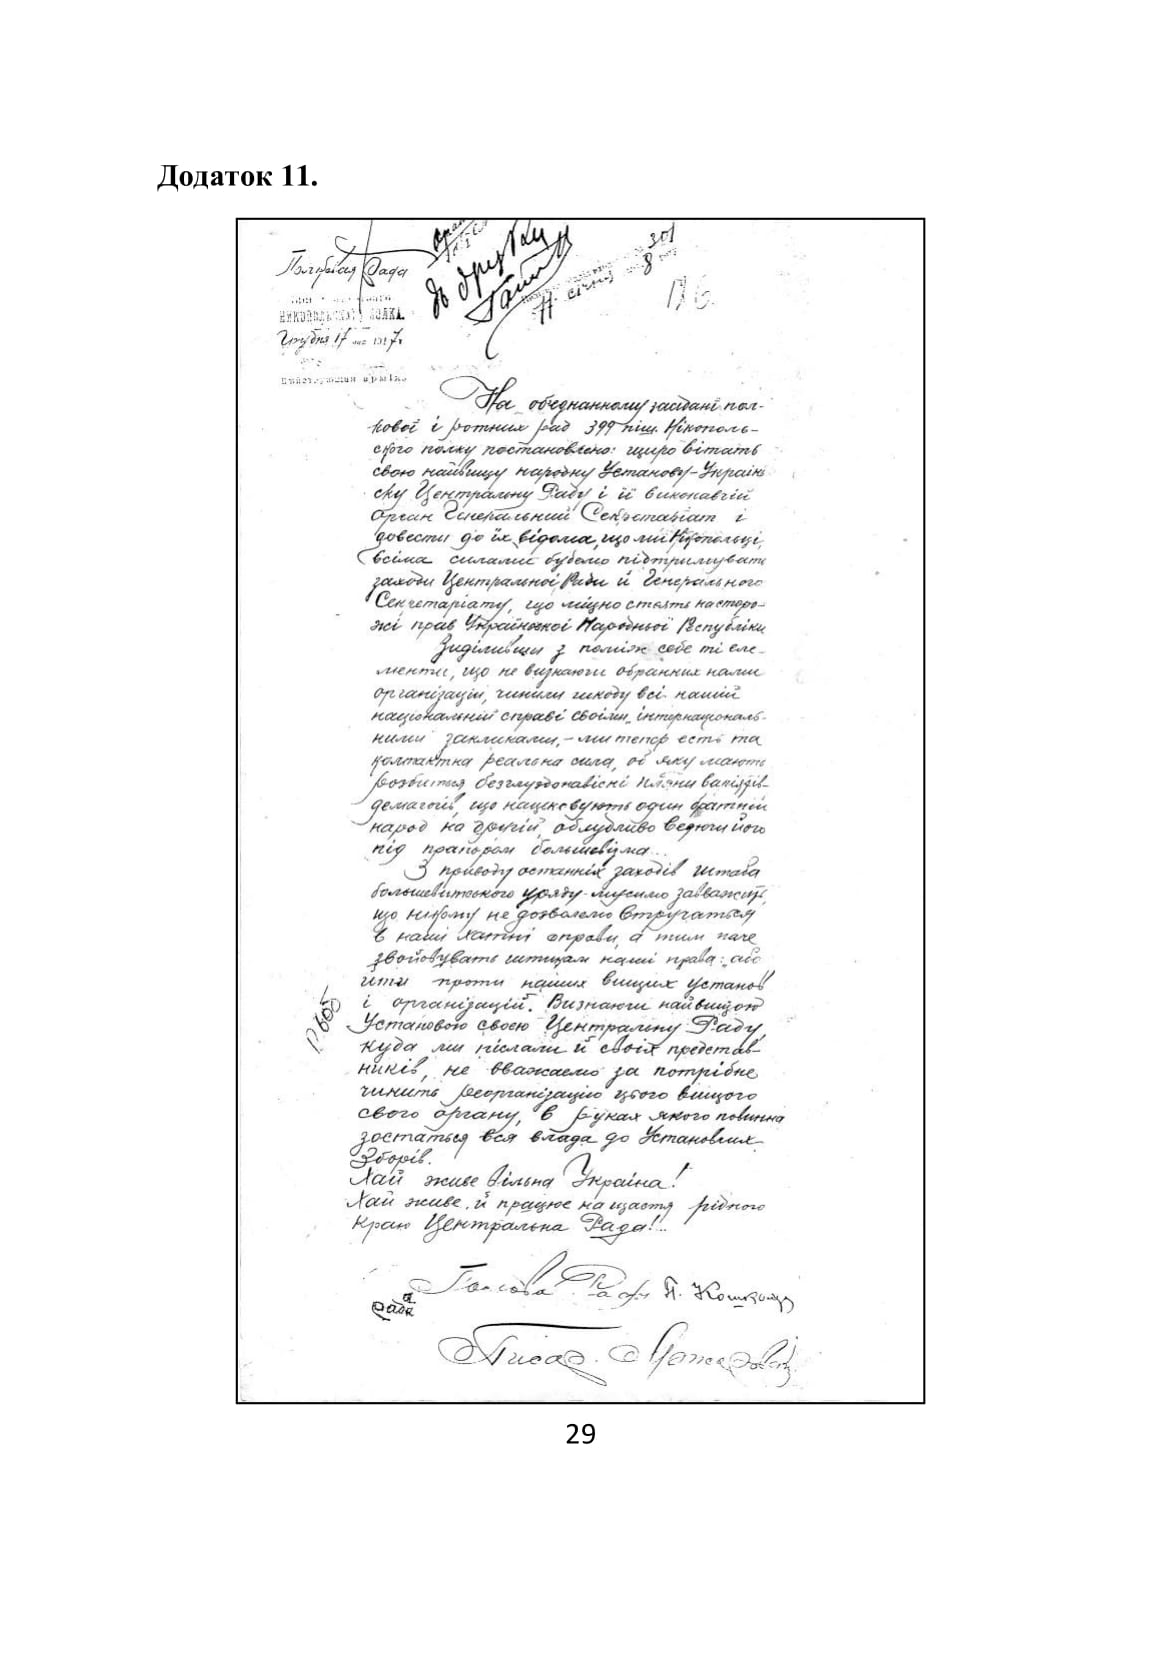 Додаток 11.
Полковая Рада
НИКОПОЛЬСКАГО ПОЛКА.
Грудня 17 дня 1917 г.
до друку
11 січня 8
301
На обєднанному засідані пол-
кової і ротних рад 399 піш. Нікополь-
ского полку постановлено: щиро вітать
свою найвищу народну Установу-Україн
ску Центральну Раду і її виконавчій
орган Генеральний Секретаріат і
довести до їх відома, що ми Нікопольці,
всіма силами будемо підтримувати
заходи Центральної Ради й Генерального
Секретаріату, що міцно стоять на сторо-
жі прав Української Народньої Республіки
Виділивши з поміж себе ті еле-
менти, що не визнаючи обранних нами
організаціи, чинили шкоду всі нашій
національній справі своїми інтернаціональ-
ними закликами, - ми тепер есть та
контактна реальна сила, об яку мають
розбиться безглуздонавісні пляни
демагогів, що нацьковують один братній
народ на другій, облудливо ведючи його
під прапором большевізма...
З приводу останніх заходів штаба
большевитського уряду мусимо завважить,
що нікому не дозволемо втручаться
в наші хатні справи, а тим паче
звойовувать штихам наші права: або
йти проти наших вищих установ
і організацій. Визнаючи найвищою
Установою своєю Центральну Раду,
куда ми післали й своїх представ-
ників, не вважаемо за потрібне
чинить реорганізацію цього вищого
свого органу, в руках якого повинна
зостаться вся влада до Установчих
Зборів.
Хай живе Вільна Україна!
Хай живе й працює на щастя рідного
краю Центральна Рада!..
Голова Ради П.
Писар
29